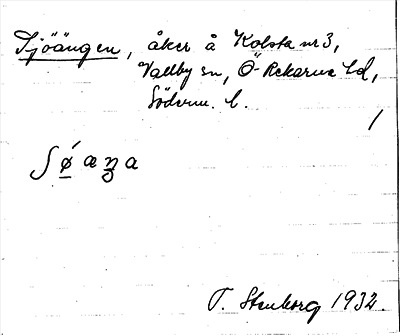 Sjöängen, åker å Kolsta nr 3,
Vallby sn, Ö-Rekarne hd,
Söderm. l.
/
ʃǿaŋa
T. Stenborg 1932.